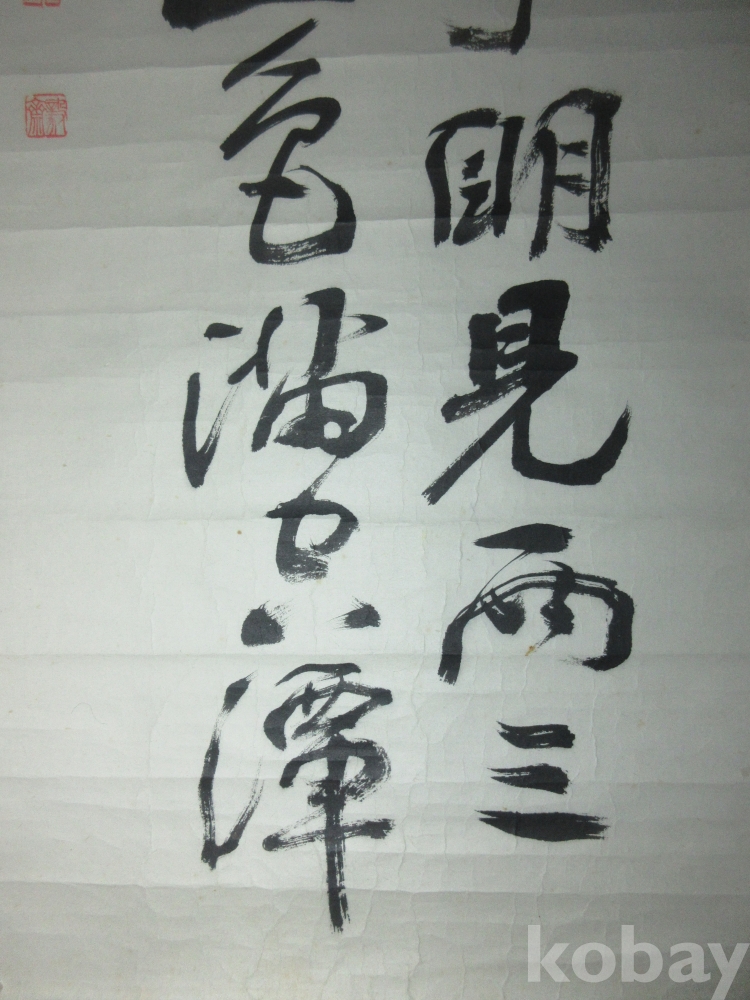 明見兩三
色滿潭
kobay